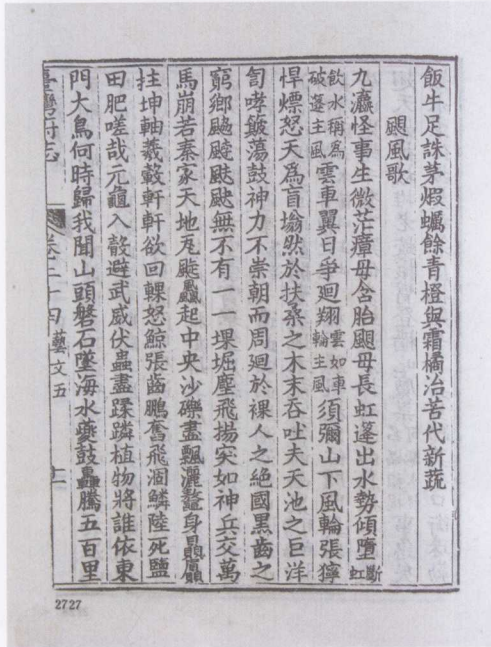 飯牛足誅茅煆蠣餘青橙與霜橘冶苦代新蔬
颶風歌
九瀛怪事生微茫瘴母含胎颶母長虹蓬出水勢傾墮斷虹
飲水稱為破蓬主風雲車翼日爭迴翔雲如車輪主風須彌山下風輪張獰
悍熛怒天為盲塕然於扶桑之木末吞吐夫天池之巨洋
訇哮簸蕩鼓神力不崇朝而周廻於裸人之絶國黑齒之
窮鄉颮無不有一一堁堀塵飛揚突如神兵交萬
馬崩若秦家天地起中央沙礫盡飄灑鼇身贔屭
拄坤軸羲馭軒軒欲回輠怒鯨張齒鵬奮飛涸鱗陸死鹽
田肥嗟哉元龜入殼避武威伏蟲盡蹂蹸植物將誰依東
門大鳥何時歸我聞山頭磐石墜海水㸑鼓轟騰五百里
臺灣府志 卷二十四 藝文五 十一
2727